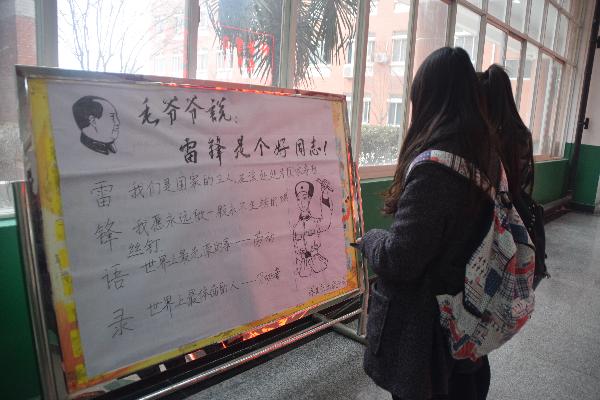 毛爷爷说：
雷锋是个好同志！
雷锋语录
我们是国家的主人,应该处处为国家着想
我愿永远做一颗永不生锈的螺
丝钉
世界上最光荣的事——劳动
世界上最体面的人——劳动者